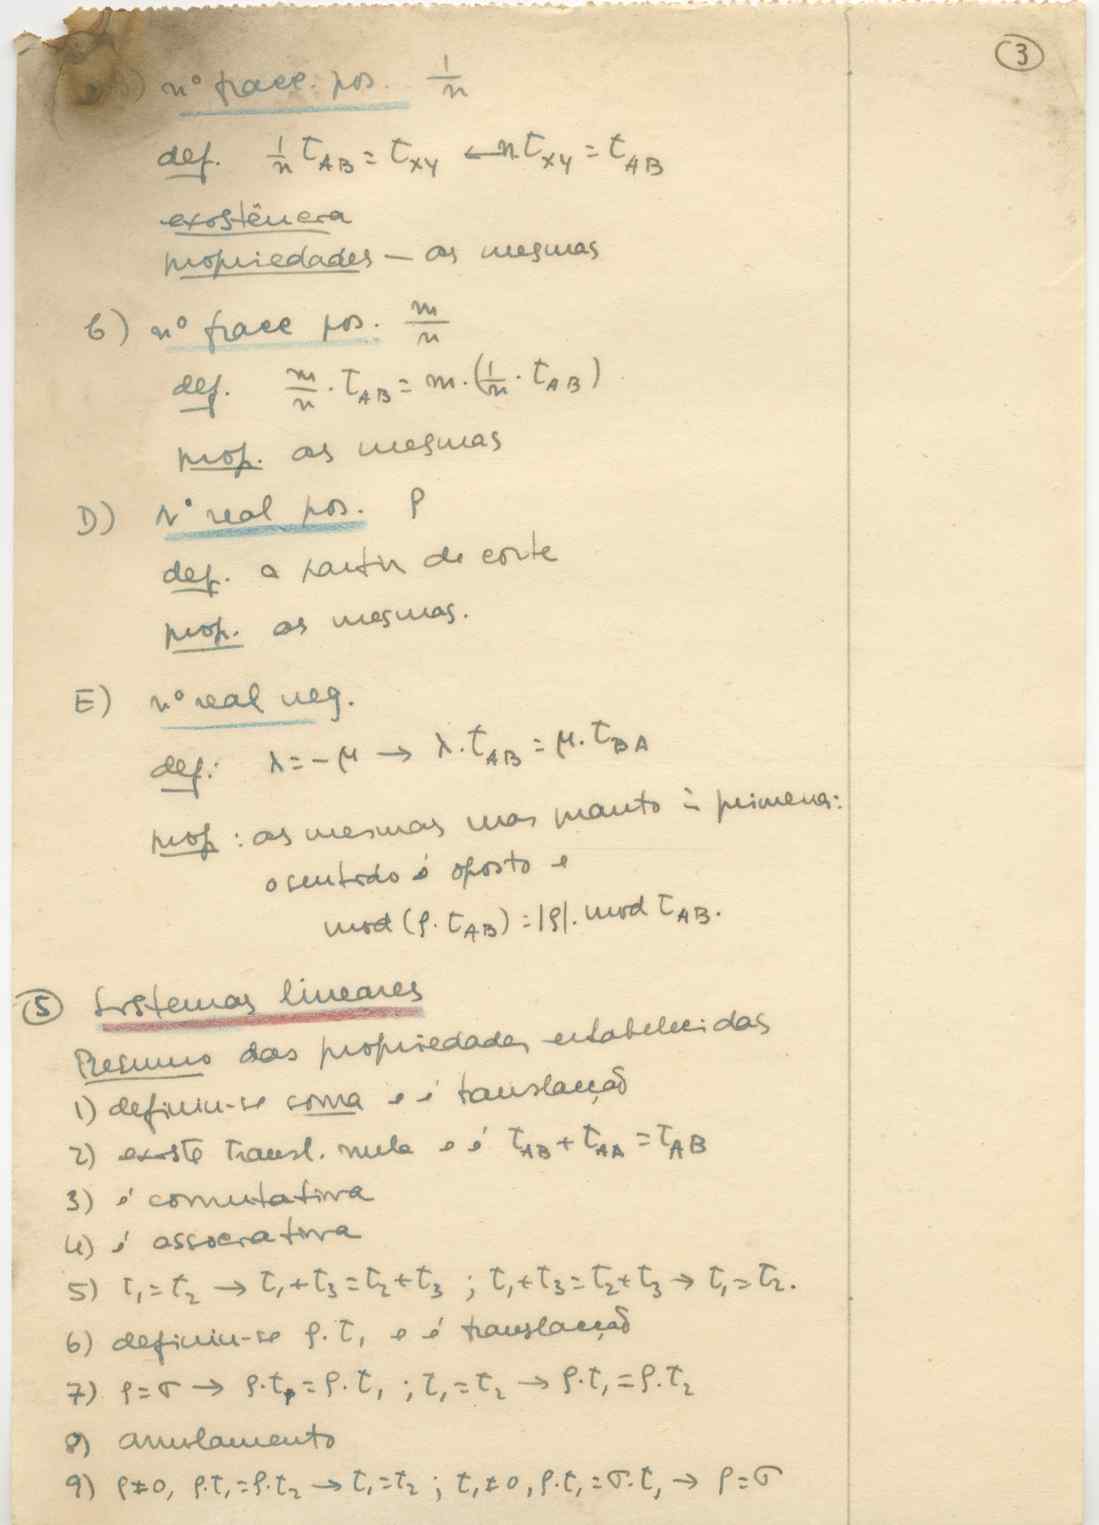 3
B) nº fracc. pos. 1/n
def. 1/n τ_AB = τ_XY ← n.τ_XY = τ_AB
existência
propriedades — as mesmas
C) nº fracc pos. m/n
def. m/n · τ_AB = m·(1/n · τ_AB)
prop. as mesmas
D) Nº real pos. ρ
def. a partir de corte
prop. as mesmas.
E) nº real neg.
def: λ = -μ → λ.τ_AB = μ.τ_BA
prop: as mesmas mas quanto à primeira:
o sentido é oposto e
mod (ρ.τ_AB) = |ρ|. mod τ_AB.
⑤ Sistemas lineares
Resumo das propriedades estabelecidas
1) definiu-se soma e é translacção
2) existe transl. nula e é τ_AB + τ_AA = τ_AB
3) é comutativa
4) é associativa
5) τ₁ = τ₂ → τ₁ + τ₃ = τ₂ + τ₃ ; τ₁ + τ₃ = τ₂ + τ₃ → τ₁ = τ₂.
6) definiu-se ρ.τ₁ e é translacção
7) ρ = σ → ρ.τ₁ = ρ.τ₁ ; τ₁ = τ₂ → ρ.τ₁ = ρ.τ₂
8) anulamento
9) ρ ≠ 0, ρ.τ₁ = ρ.τ₂ → τ₁ = τ₂ ; τ₁ ≠ 0, ρ.τ₁ = σ.τ₁ → ρ = σ